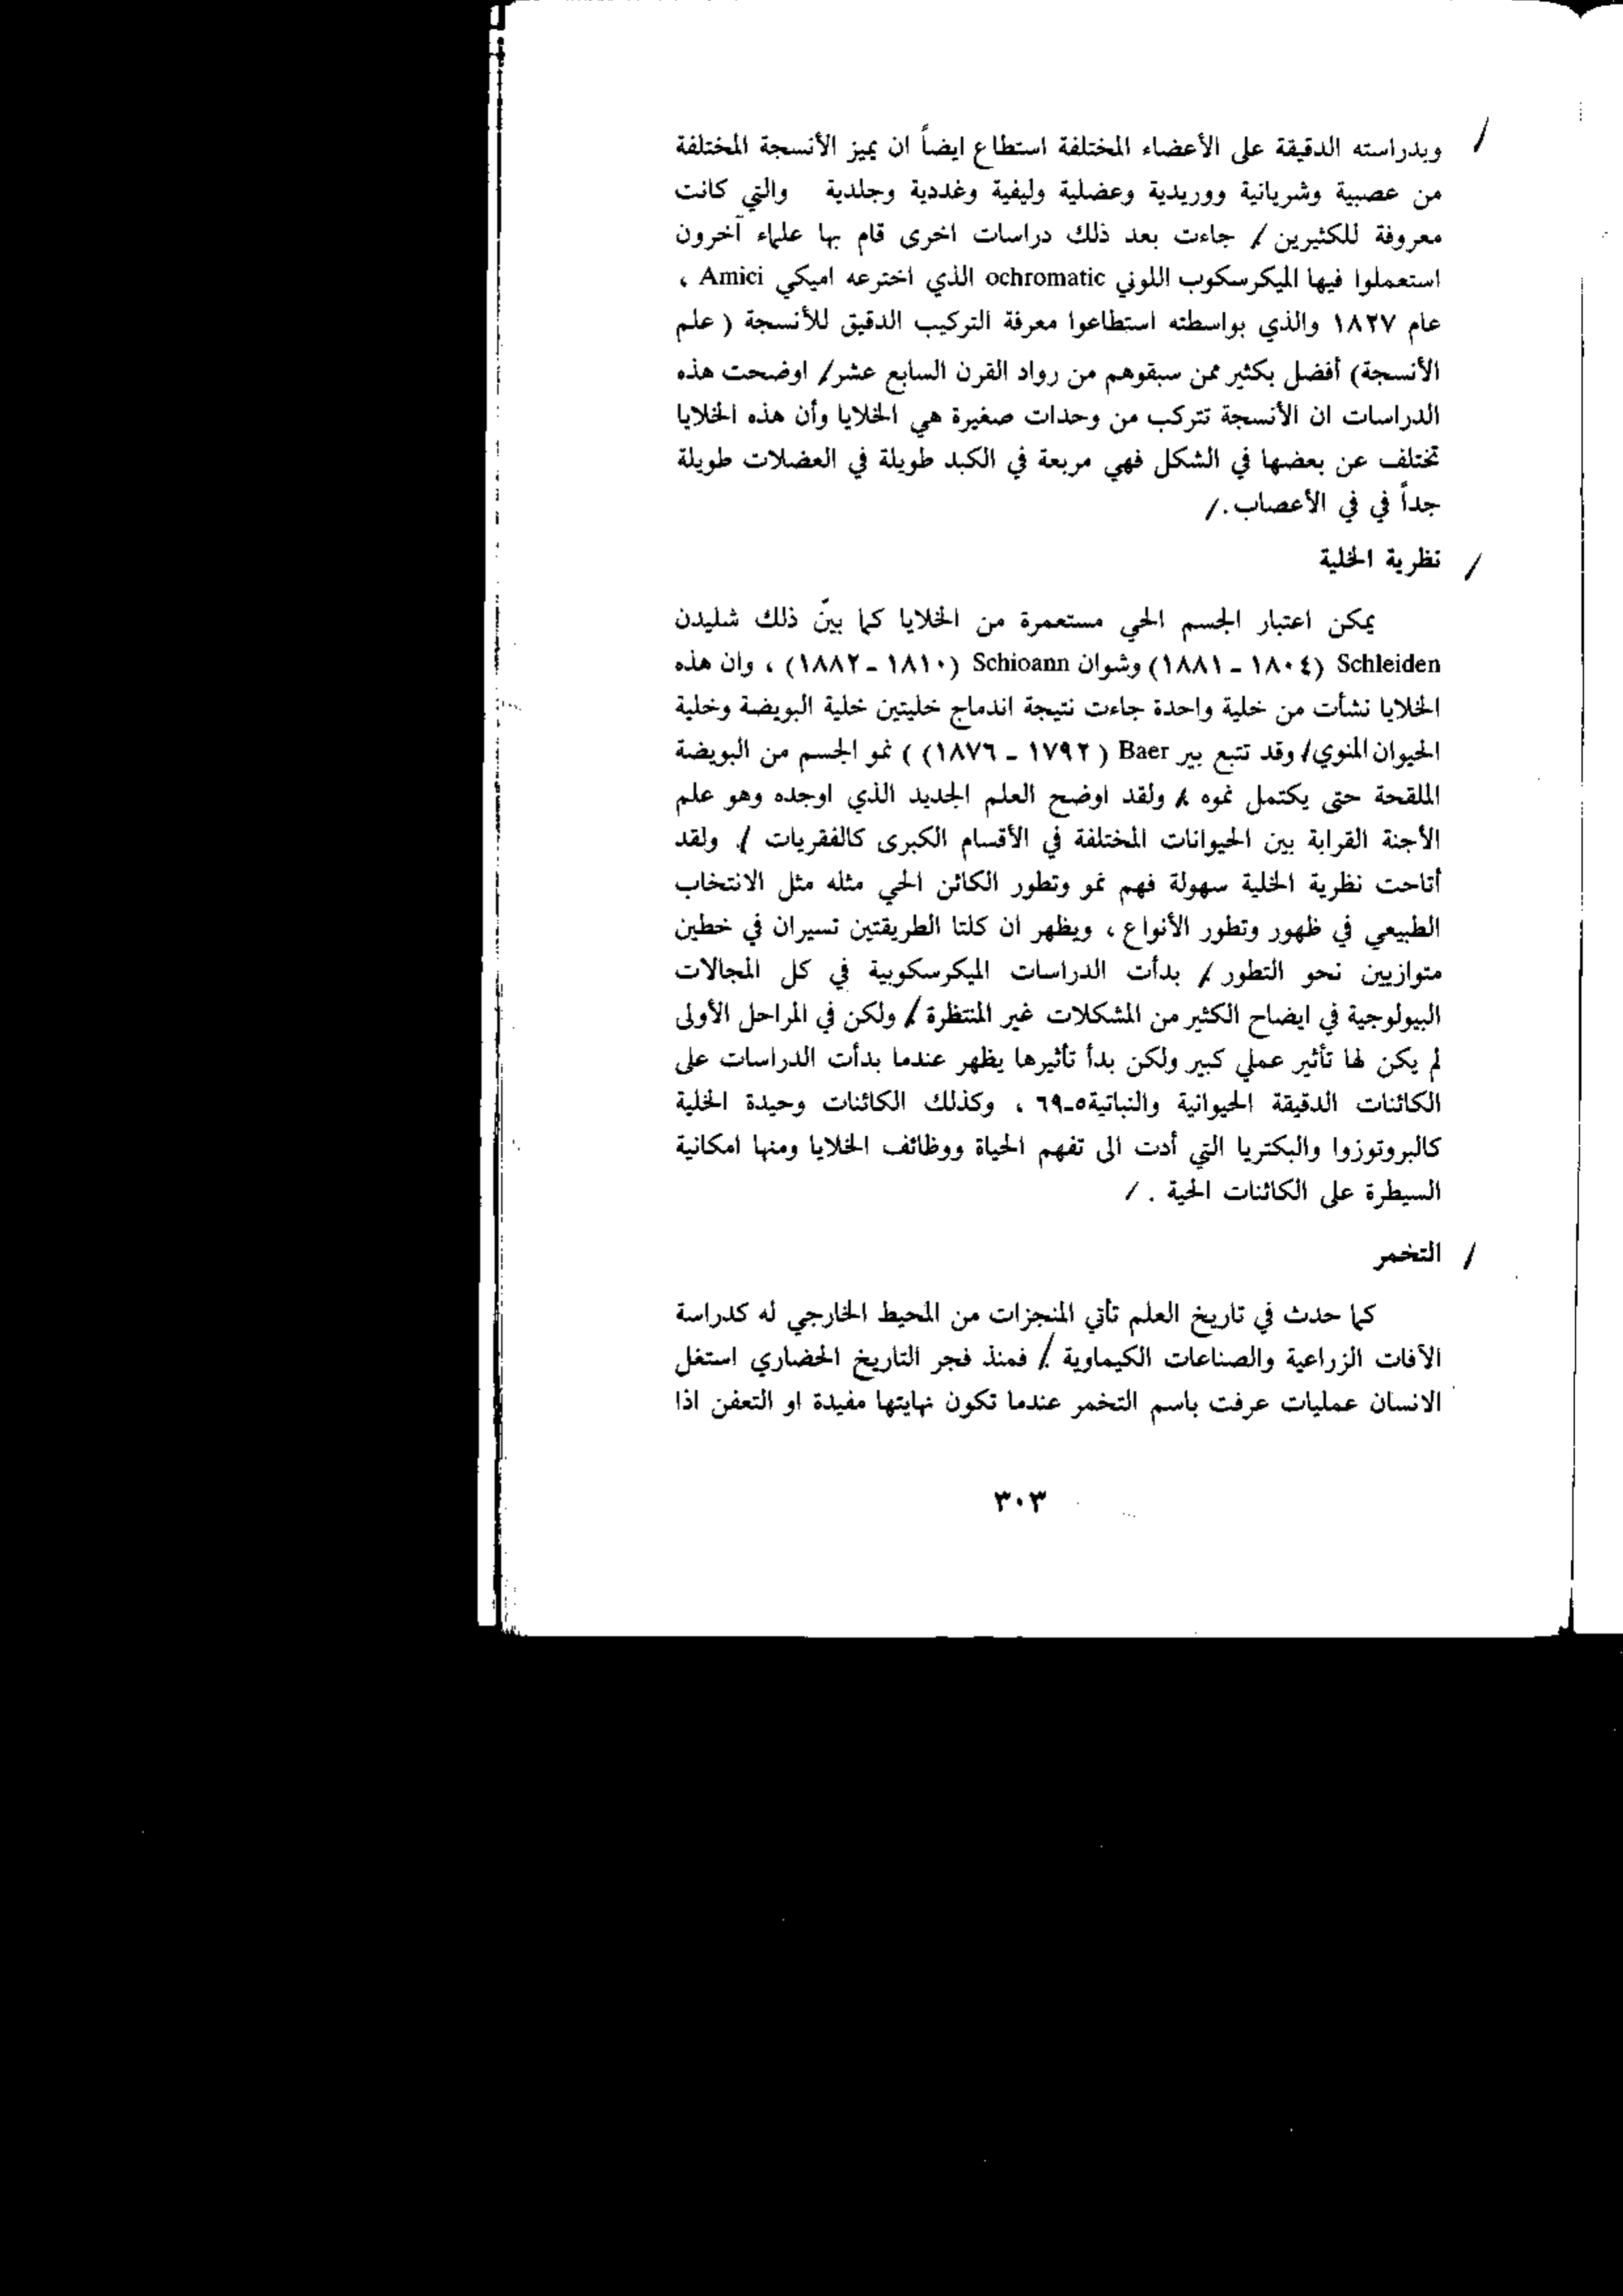 وبدراسته الدقيقة على الأعضاء المختلفة استطاع ايضاً ان يميز الأنسجة المختلفة
من عصبية وشريانية ووريدية وعضلية وليفية وغددية وجلدية والتي كانت
معروفة للكثيرين / جاءت بعد ذلك دراسات اخرى قام بها علماء آخرون
استعملوا فيها الميكرسكوب اللوني ochromatic الذي اخترعه اميكي Amici ،
عام ١٨٢٧ والذي بواسطته استطاعوا معرفة التركيب الدقيق للأنسجة ( علم
الأنسجة) أفضل بكثير ممن سبقوهم من رواد القرن السابع عشر/ اوضحت هذه
الدراسات ان الأنسجة تتركب من وحدات صغيرة هي الخلايا وأن هذه الخلايا
تختلف عن بعضها في الشكل فهي مربعة في الكبد طويلة في العضلات طويلة
جداً في في الأعصاب ./
/ نظرية الخلية
يمكن اعتبار الجسم الحي مستعمرة من الخلايا كما بينّ ذلك شليدن
Schleiden (١٨٠٤ - ١٨٨١) وشوان Schioann (١٨١٠ - ١٨٨٢) ، وان هذه
الخلايا نشأت من خلية واحدة جاءت نتيجة اندماج خليتين خلية البويضة وخلية
الحيوان المنوي/ وقد تتبع بير Baer ( ١٧٩٢ - ١٨٧٦) ) نمو الجسم من البويضة
الملقحة حتى يكتمل نموه / ولقد اوضح العلم الجديد الذي اوجده وهو علم
الأجنة القرابة بين الحيوانات المختلفة في الأقسام الكبرى كالفقريات /. ولقد
أتاحت نظرية الخلية سهولة فهم نمو وتطور الكائن الحي مثله مثل الانتخاب
الطبيعي في ظهور وتطور الأنواع ، ويظهر ان كلتا الطريقتين تسيران في خطين
متوازيين نحو التطور / بدأت الدراسات الميكرسكوبية في كل المجالات
البيولوجية في ايضاح الكثير من المشكلات غير المنتظرة / ولكن في المراحل الأولى
لم يكن لها تأثير عملي كبير ولكن بدأ تأثيرها يظهر عندما بدأت الدراسات على
الكائنات الدقيقة الحيوانية والنباتية٥-٦٩ ، وكذلك الكائنات وحيدة الخلية
كالبروتوزوا والبكتريا التي أدت الى تفهم الحياة ووظائف الخلايا ومنها امكانية
السيطرة على الكائنات الحية . /
/ التخمر
كما حدث في تاريخ العلم تأتي المنجزات من المحيط الخارجي له كدراسة
الآفات الزراعية والصناعات الكيماوية / فمنذ فجر التاريخ الحضاري استغل
الانسان عمليات عرفت باسم التخمر عندما تكون نهايتها مفيدة او التعفن اذا
٣٠٣